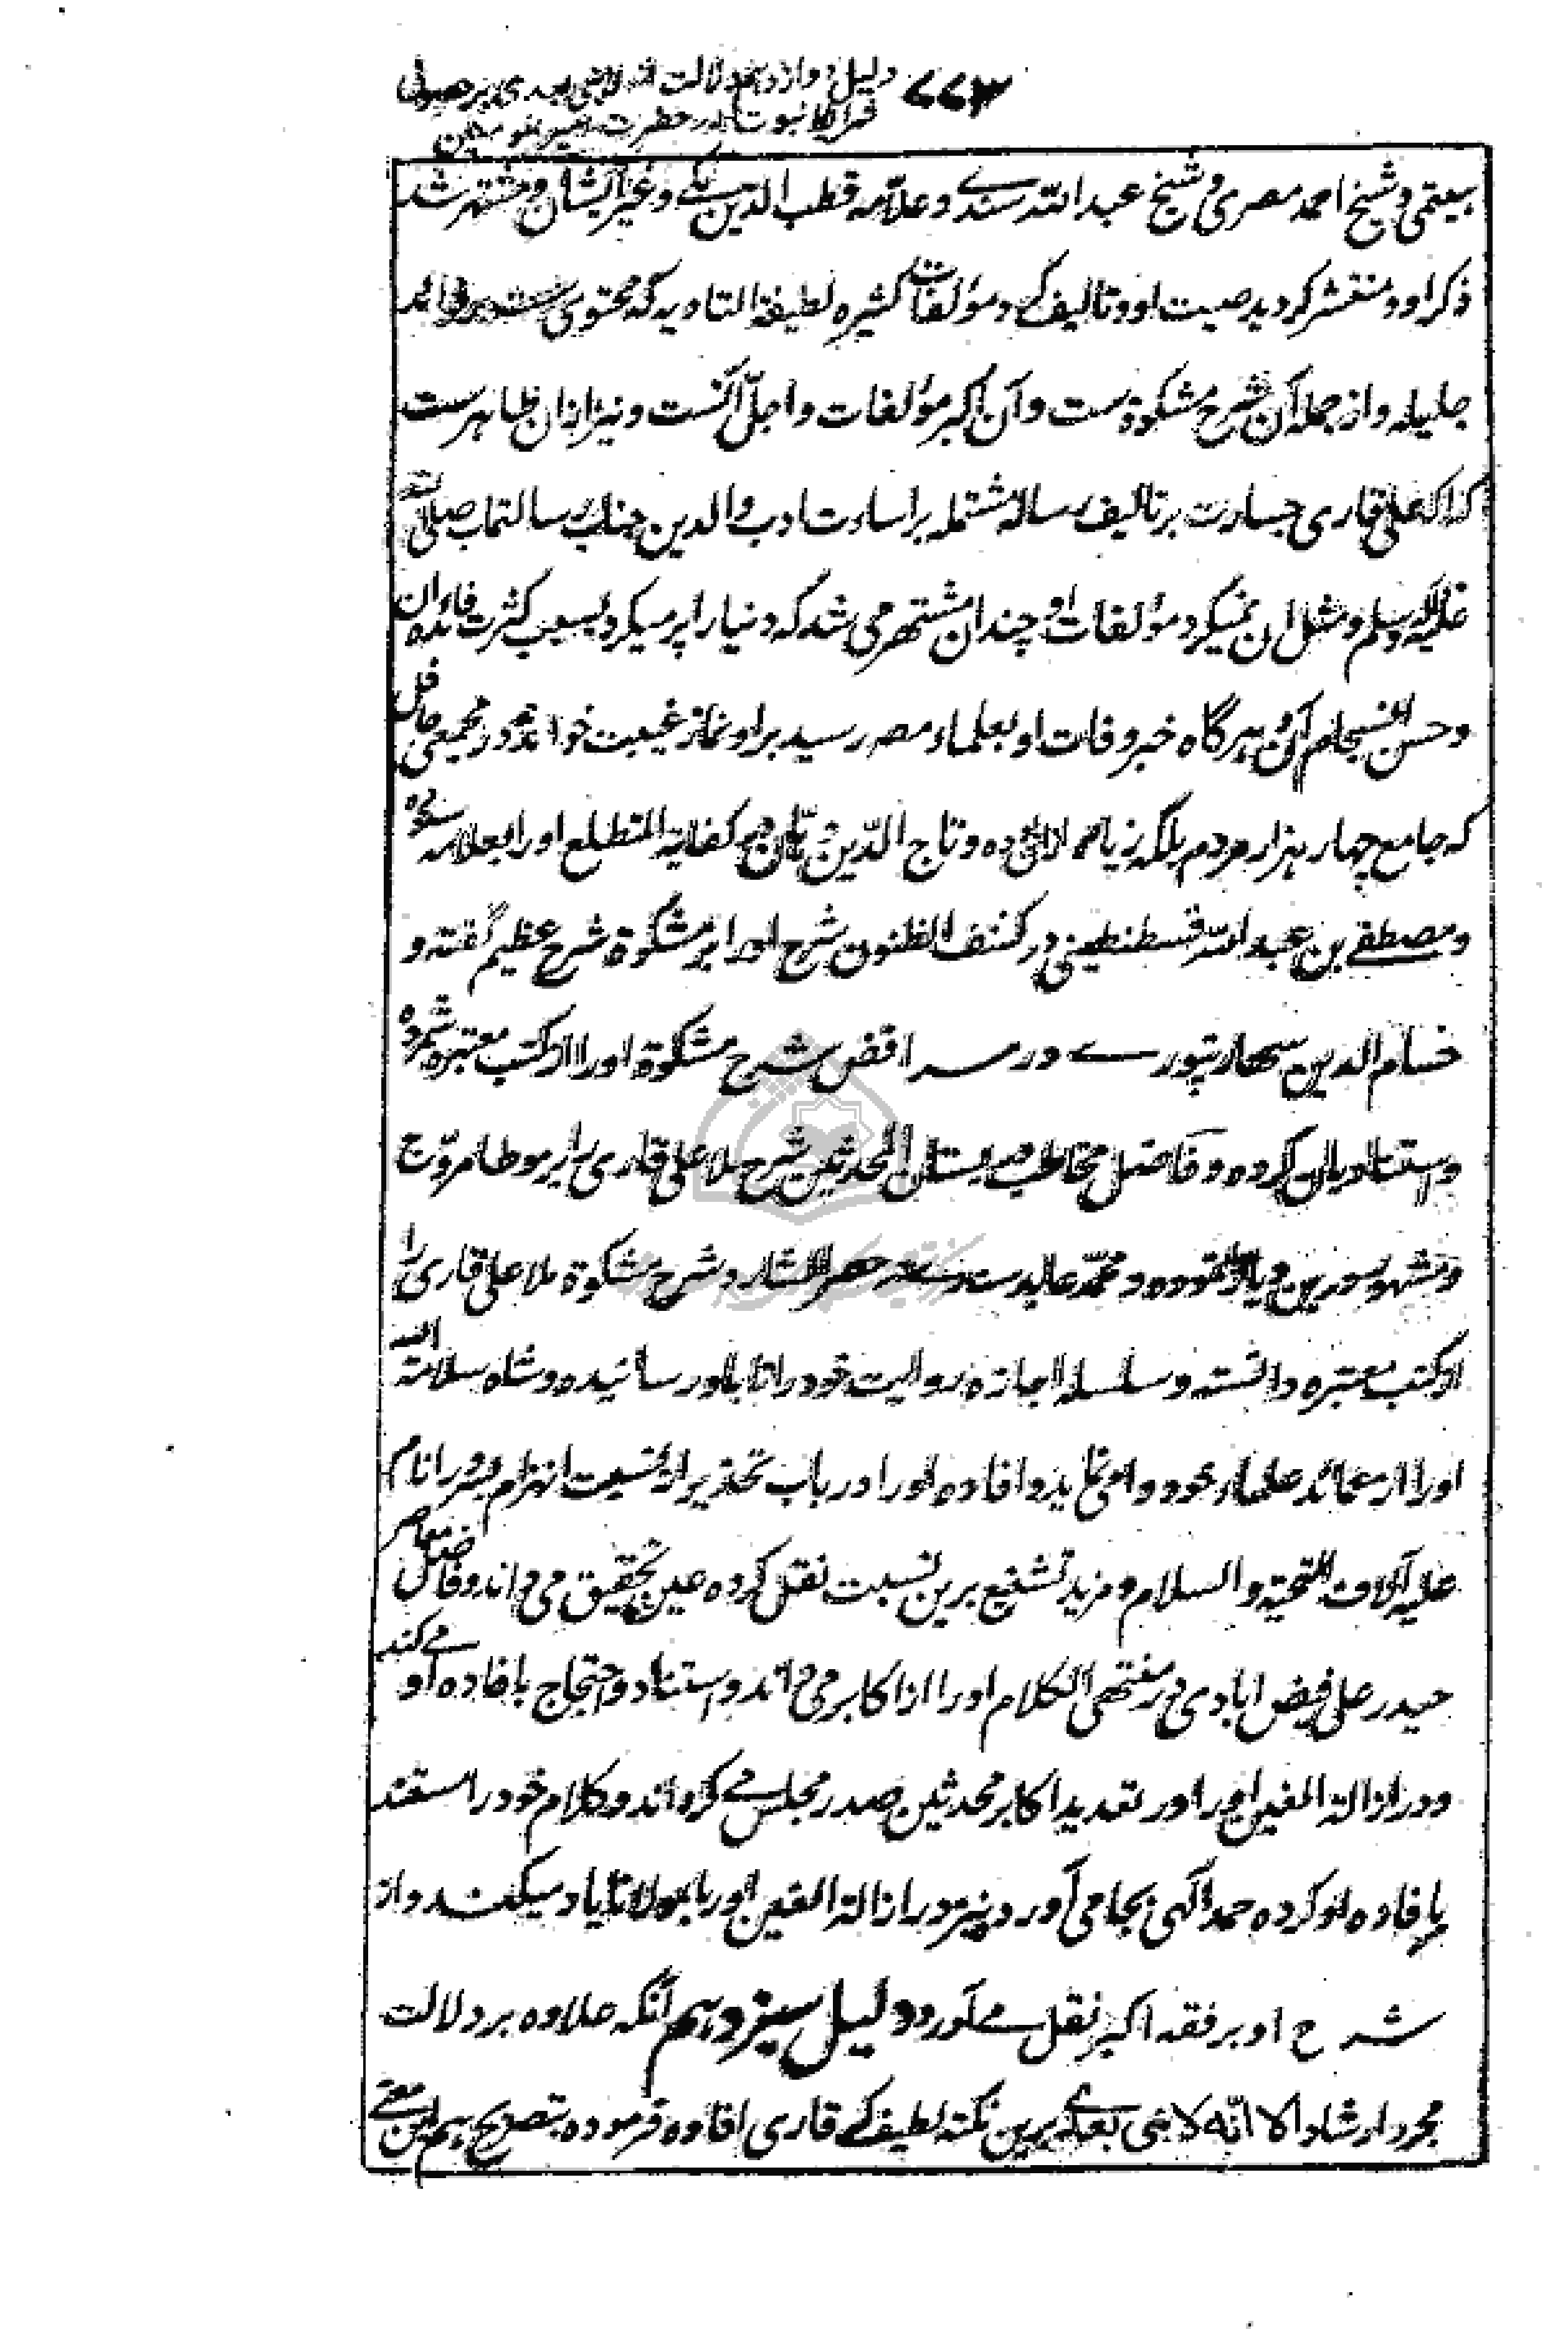 ۷۷۳ دلیل دوازدهم دلالت انه لا نبی بعدی بر حصول
شرائط نبوت در حضرت امیر المومنین
هیتمی و شیخ احمد مصری و شیخ عبد الله سندے و علامه قطب الدین مکے و غیر ایشان و مشتهر شد
ذکر او و منتشر گردید صیت او و تالیف کرد مؤلفات کثیره لطیفة التادیه که محتوی ست بر فوائد
جلیله و از جمله آن شرح مشکوة ست و آن اکبر مؤلفات و اجل آنست و نیز ازان ظاهرست
که اگر علی قاری جسارت بر تالیف رساله مشتمله بر اساءت ادب والدین جناب رسالتماب صلی الله
علیه و آله وسلم و مثل ان نمیکرد مؤلفات او چندان مشتهر می شد که دنیا را پر میکرد بسبب کثرت فائده ان
و حسن انسجام آن و هرگاه خبر وفات او بعلماء مصر رسید بر او نماز غیبت خواندند در مجمعی حافل
که جامع چهار هزار مردم بلکه زیاده ازان بوده و تاج الدین دهان در کفایة المتطلع اورا بعلامه ستوده
و مصطفے بن عبد الله قسطنطینی در کشف الظنون شرح اورا بر مشکوة شرح عظیم گفته و
حسام الدین سهارنپورے در مرافض شرح مشکوة اورا از کتب معتبره شمرده
و استناد بان کرده و فاضل مخاطب در بستان المحدثین شرح ملا علی قاری را بر موطا مروّج
و مشهور درین دیار نموده و محمد عابد سندے در حصر الشارد شرح مشکوة ملا علی قاری را
از کتب معتبره دانسته و سلسله اجازه روایت خود را تا باو رسانیده و شاه سلامة الله
اورا از عمائد علماء خود وا می نماید و افاده اورا در باب تحذیر از نسبت انهزام بسرور انام
علیه آلاف التحیة و السلام و مزید تشنیع برین نسبت نقل کرده عین تحقیق می داند و فاضل معاصر
حیدر علی فیض ابادی در منتهی الکلام اورا از اکابر می داند و استناد و احتجاج بافاده او مے کند
و در ازالة الغین اورا در تعدید اکابر محدثین صدر مجلس مے گرداند و کلام خود را مستند
بافاده او کرده حمد الهی بجا می آورد و نیز در ازالة الغین اورا بمولانا یاد میکند و از
شرح او بر فقه اکبر نقل مے آورد و دلیل سیزدهم آنکه علاوه بر دلالت
مجرد ارشاد الا انّه لا نبی بعدے برین نکته لطیفه که قاری افاده فرموده بتصریح هم این معنے